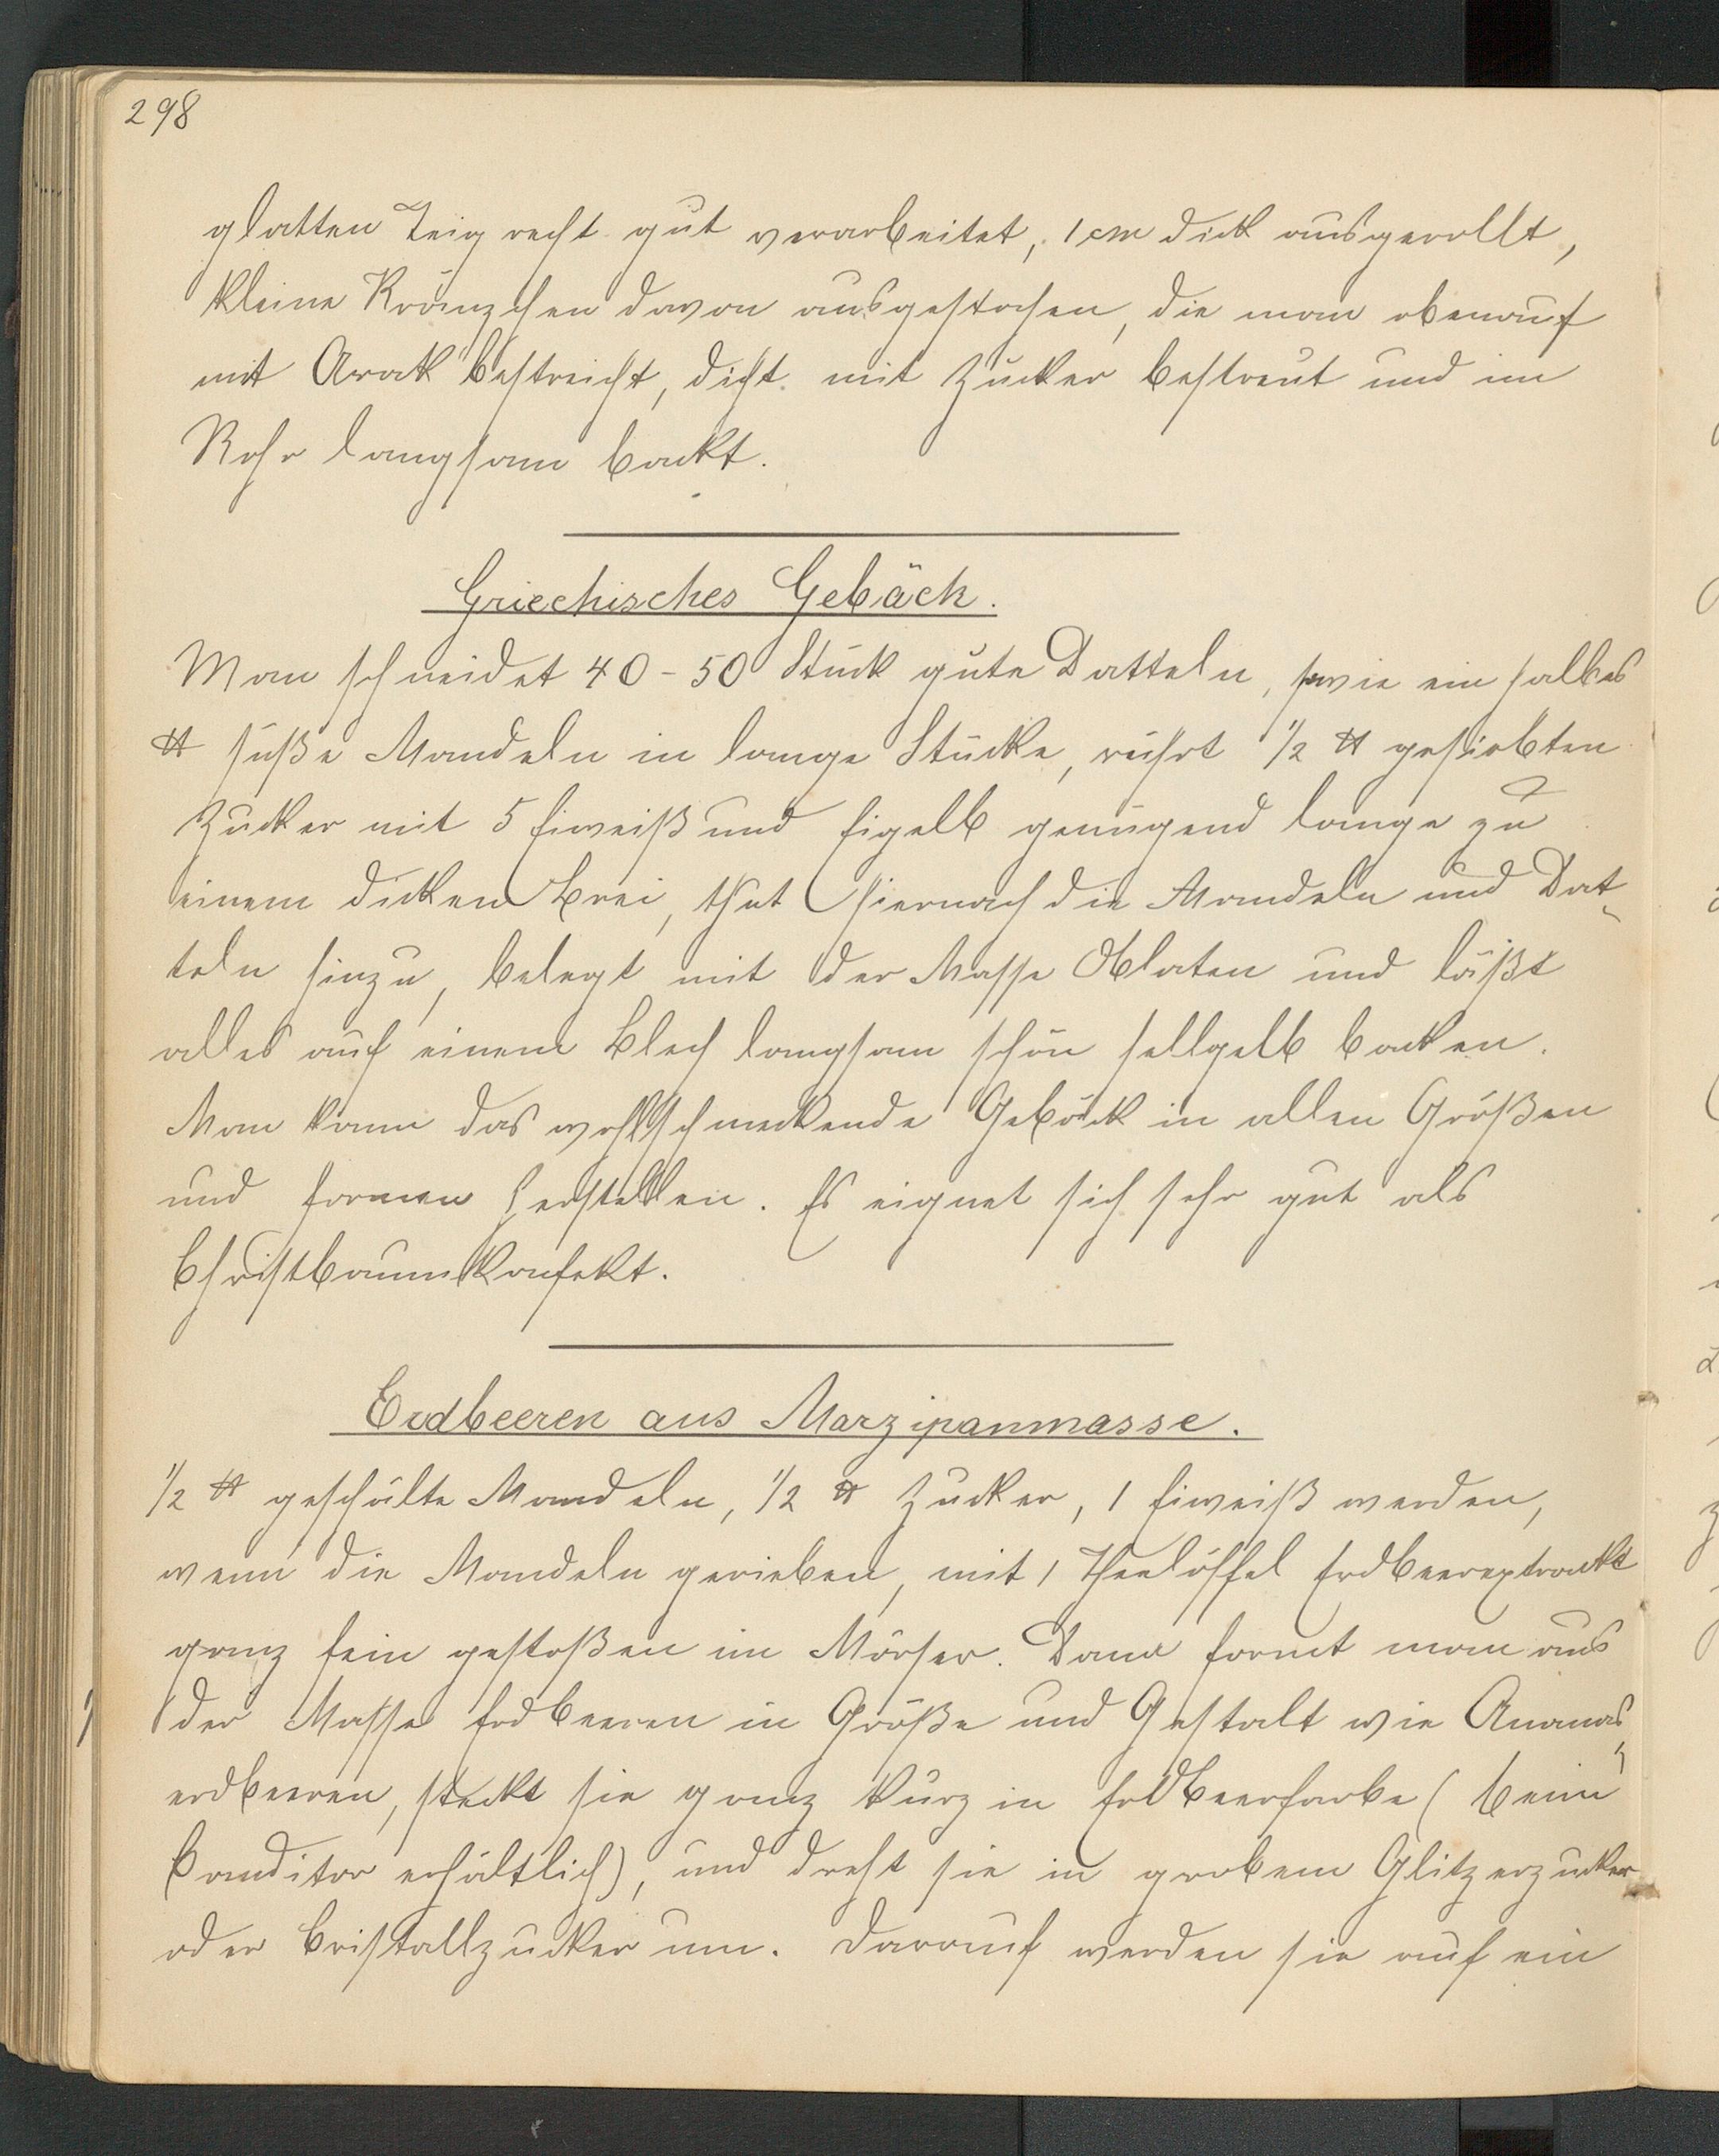 298
glatten Teig recht gut verarbeitet, 1 cm dick ausgerollt,
kleine Kränzchen davon ausgestochen, die man obenauf
mit Arak bestreicht, dicht mit Zucker bestreut und im
Rohr langsam backt.
Griechisches Gebäck.
Man schneidet 40-50 Stück gute Datteln, sowie ein halbes
℔ süße Mandeln in lange Stücke, rührt ½ ℔ gesiebten
Zucker mit 5 Eiweiß und Eigelb genügend lange zu
einem dicken Brei, thut hiernach die Mandeln und Dat-
teln hinzu, belegt mit der Masse Oblaten und läßt
alles auf einem Blech langsam schön hellgelb backen.
Man kann das wohlschmeckende Gebäck in allen Größen
und Formen herstellen. Es eignet sich sehr gut als
Christbaumkonfekt.
Erdbeeren aus Marzipanmasse.
½ ℔ geschälte Mandeln, ½ ℔ Zucker, 1 Eiweiß werden,
wenn die Mandeln gerieben, mit 1 Theelöffel Erdbeerextrakt
ganz fein gestoßen im Mörser. Dann formt man aus
der Masse Erdbeeren in Größe und Gestalt wie Ananas-
erdbeeren, steckt sie ganz kurz in Erdbeerfarbe (beim
Conditor erhältlich), und dreht sie in grobem Glitzerzucker
oder Cristallzucker um. Darauf werden sie auf ein